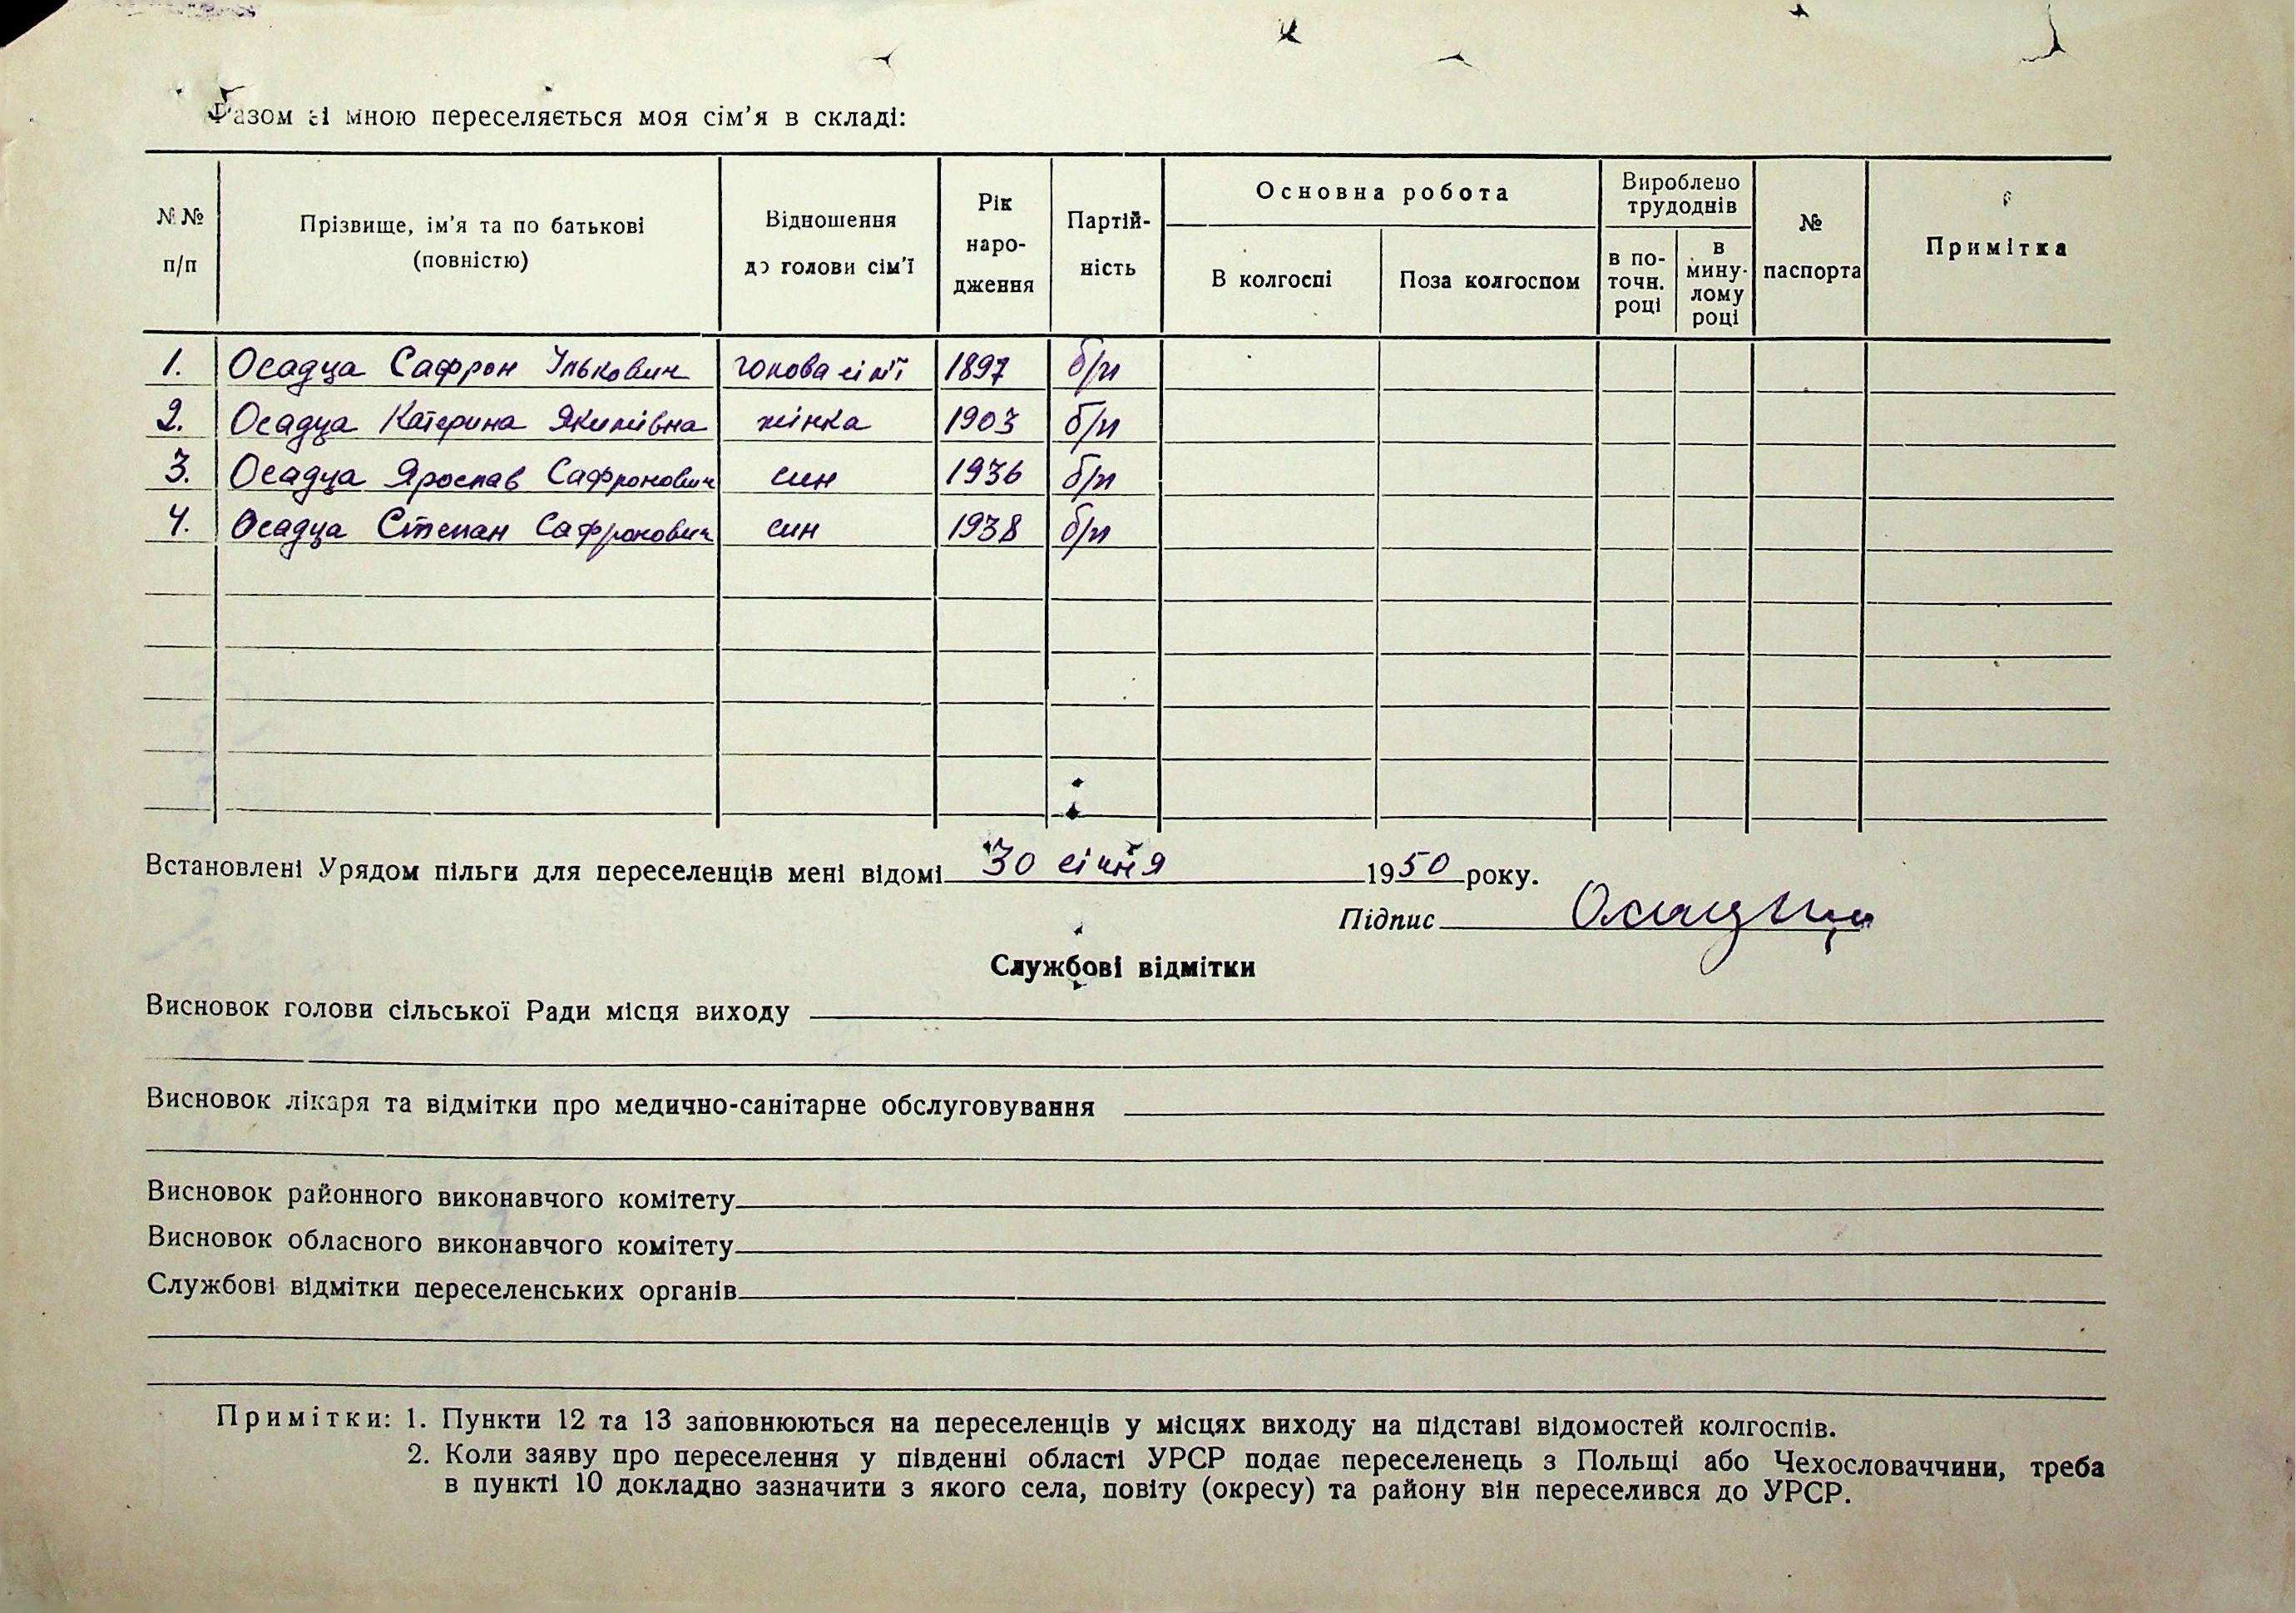 Разом зі мною переселяється моя сім'я в складі:
№№ п/п | Прізвище, ім'я та по батькові (повністю) | Відношення до голови сім'ї | Рік народження | Партій-ність | Основна робота | Вироблено трудоднів | № паспорта | Примітка
В колгоспі | Поза колгоспом | в по-точн. році | в мину-лому році
1. Осадца Сафрон Ількович голова сім'ї 1897 б/п
2. Осадца Катерина Якимівна жінка 1903 б/п
3. Осадца Ярослав Сафронович син 1936 б/п
4. Осадца Степан Сафронович син 1938 б/п
Встановлені Урядом пільги для переселенців мені відомі 30 січня 1950 року.
Підпис Осадца
Службові відмітки
Висновок голови сільської Ради місця виходу
Висновок лікаря та відмітки про медично-санітарне обслуговування
Висновок районного виконавчого комітету
Висновок обласного виконавчого комітету
Службові відмітки переселенських органів
Примітки: 1. Пункти 12 та 13 заповнюються на переселенців у місцях виходу на підставі відомостей колгоспів.
2. Коли заяву про переселення у південні області УРСР подає переселенець з Польщі або Чехословаччини, треба
в пункті 10 докладно зазначити з якого села, повіту (окресу) та району він переселився до УРСР.